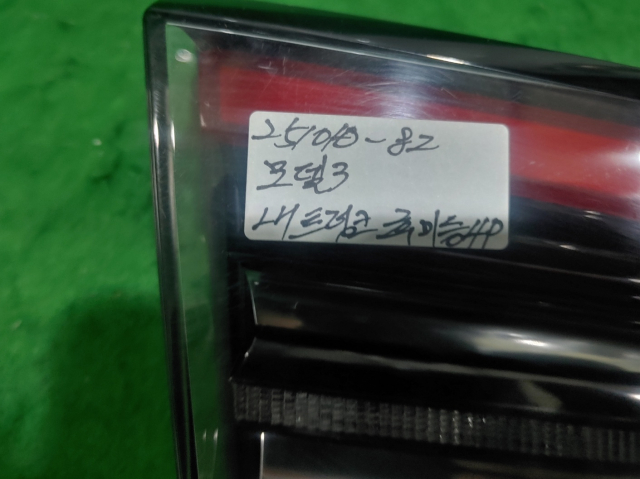 251010-82
모델3
내트렁크 후미등HP